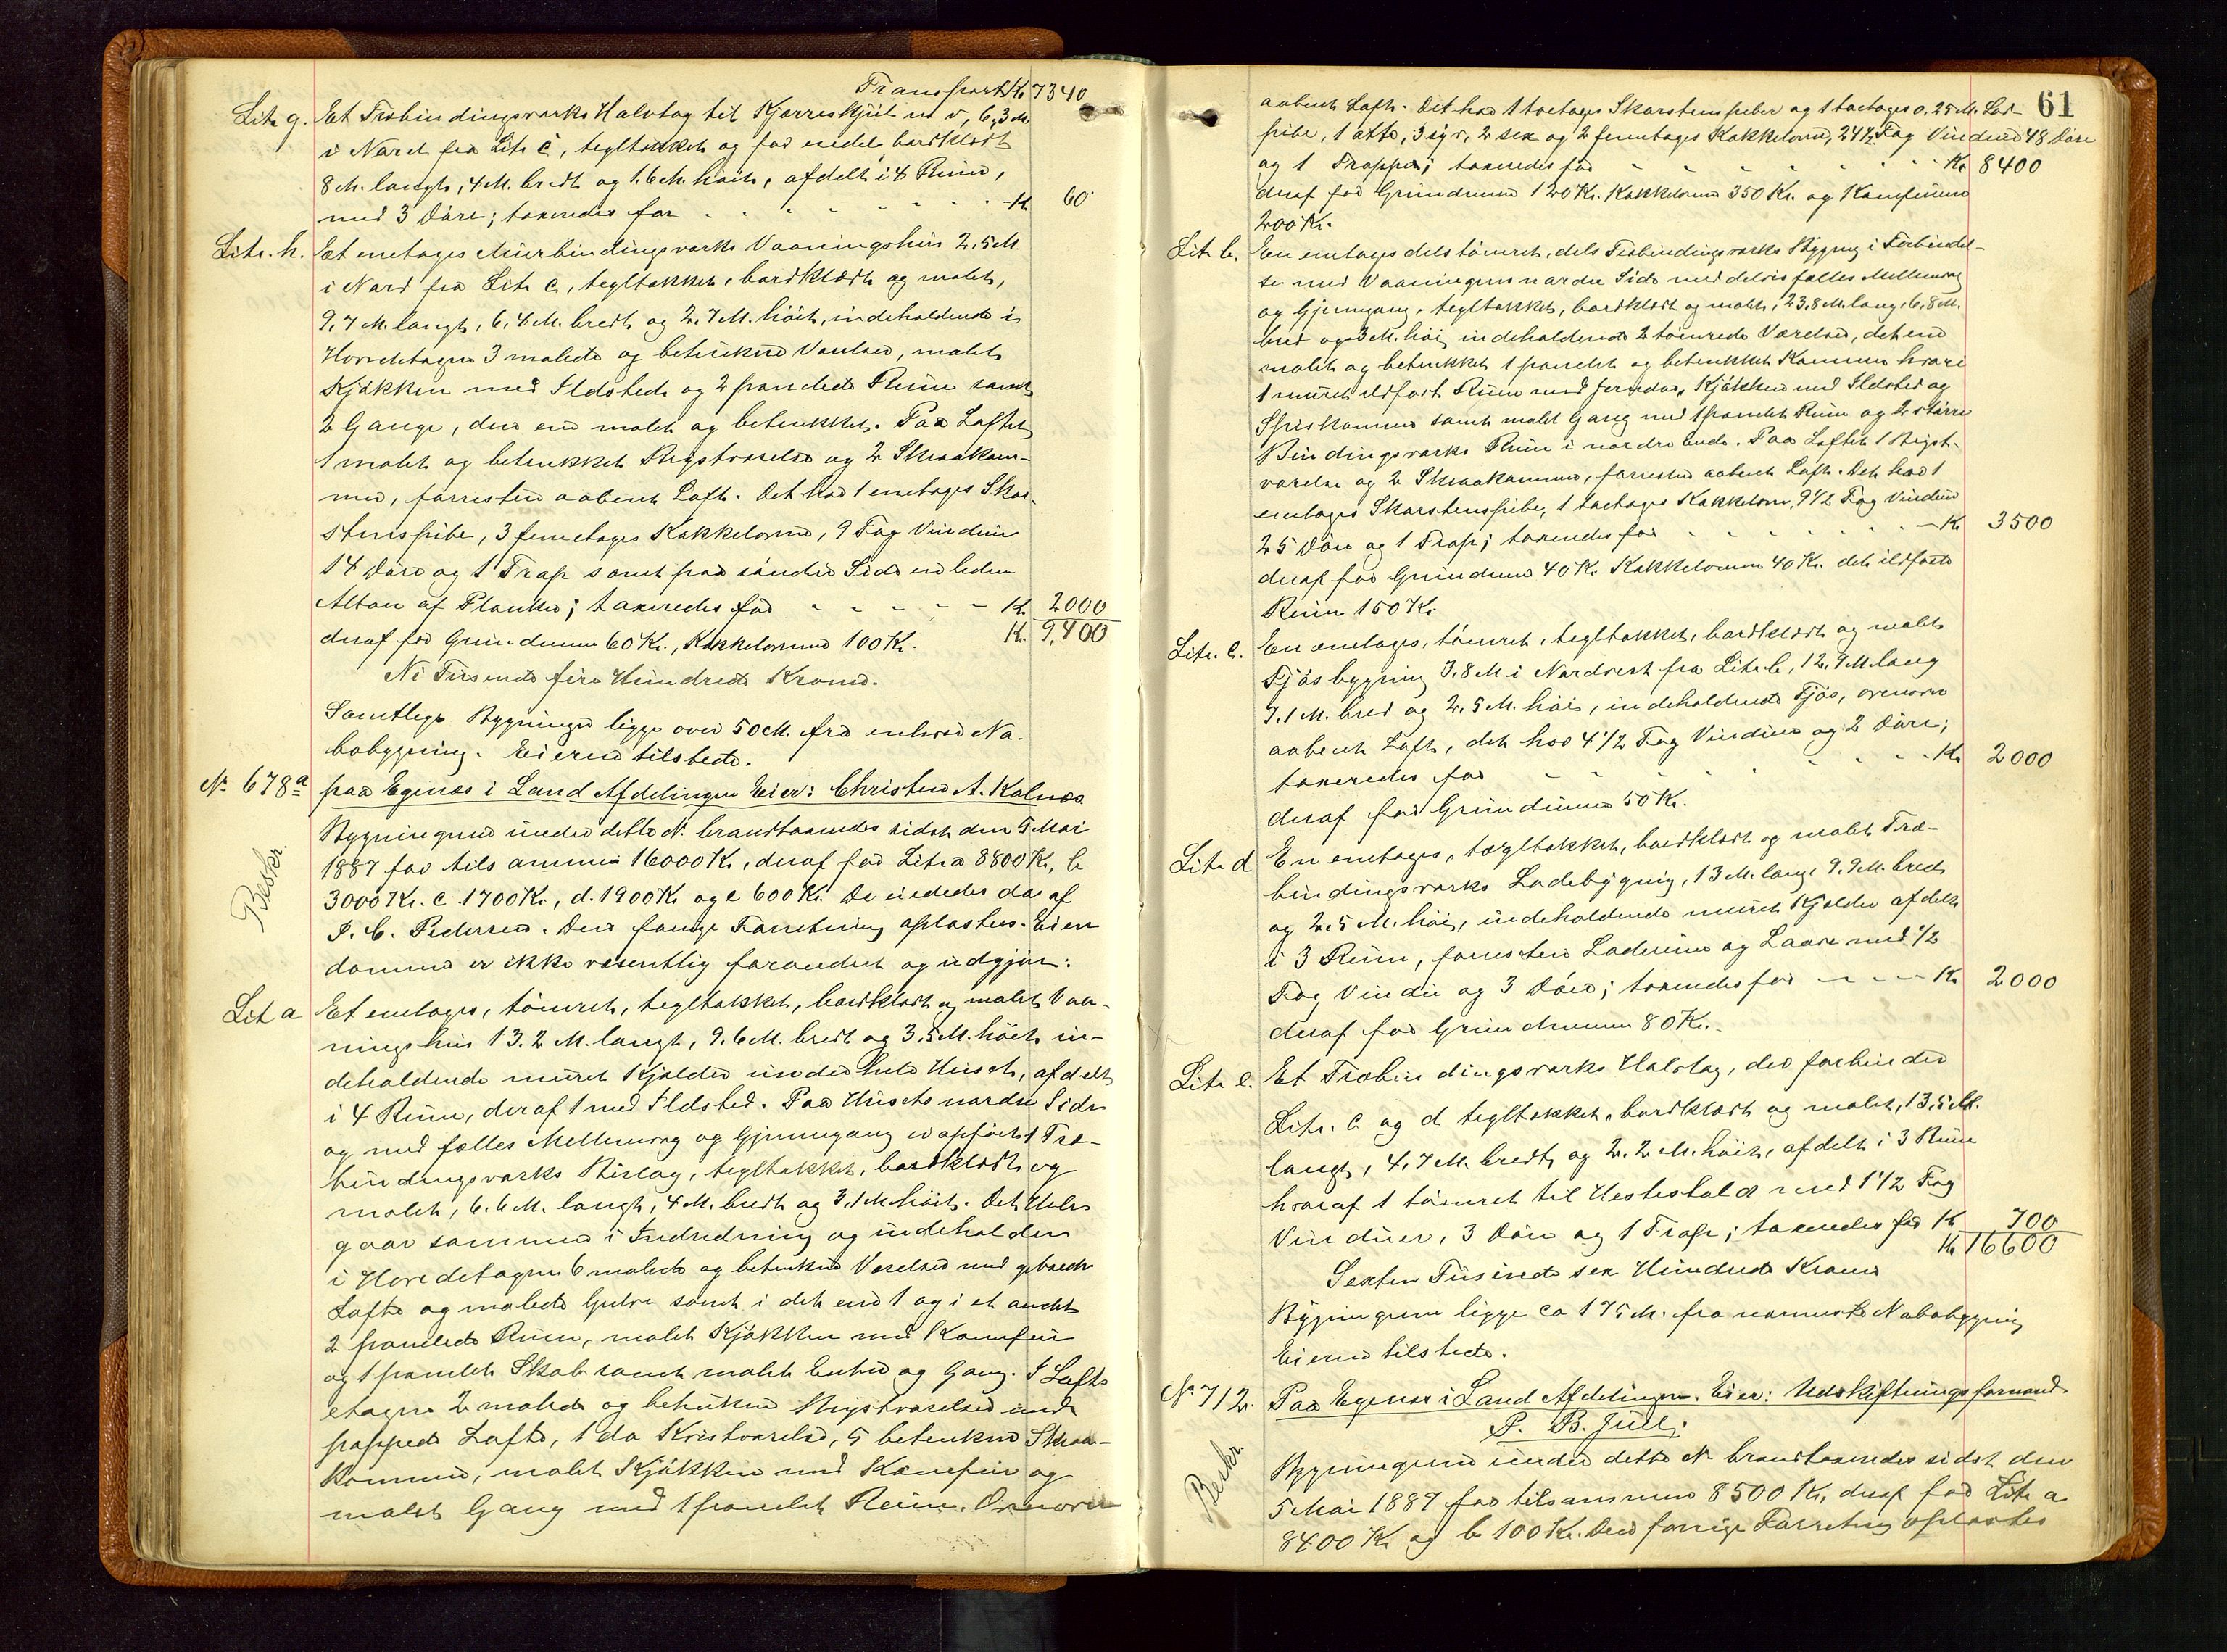 Transport Kr 7340
Litr g. Et Træbindingsværks Halvtag til Kjærreskjül m v, 6,3 M.
i Nord fra Litr c, tegltækket og for endel bordklædt
8 M. langt, 4 M. bredt og 1.6 M. höit, afdelt i 4 Rüm,
med 3 Döre; taxeredes for - - - - Kr 60
Litr. h. Et enetages Mürbindingsværks Vaaningshüs 2.5 M.
i Nord fra Litr c, tegltækket, bordklædt og malet,
9,7 M. langt, 6,4 M. bredt og 2,7 M. höit, indeholdende i
Hovedetagen 3 malede og betrukne Værelser, malet
Kjökken med Ildsted og 2 panelede Rüm samt
2 Gange, den ene malet og betrukket. Paa Loftet
1 malet og betrukket Kvistværelse og 2 Skraakam-
mer, forresten aabent Loft. Det har 1 enetages Skor-
stenspibe, 3 femetages Kakkelovne, 9 Fag Vindüer
14 Döre og 1 Trap samt paa söndre Side en liden
Altan af Planker; taxeredes for - - - - Kr 2000
deraf for Gründmüren 60 Kr., Kakkelovnene 100 Kr. Kr. 9,400
Ni Tüsende fire Hündrede Kroner.
Samtlige Bygninger ligge over 50 M. fra enhver Na-
bobygning. Eieren tilstede.
No 678a paa Egenæs i Land Afdelingen Eier: Christen A. Kalnæs
Beskr.
Bygningerne ünder dette No brandtaxeredes sidst den 5 Mai
1887 for tilsammen 16000 Kr, deraf for Litr a 8800 Kr, b
3000 Kr. c 1700 Kr., d. 1900 Kr og e 600 Kr. De eiedes da af
P. C. Pedersen. Den forrige Forretning oplæstes. Eien-
dommen er ikke væsentlig forandret og üdgjör:
Lit a Et enetages, tömret, tegltækket, bordklædt og malet Vaa-
ningshüs 13.2 M. langt, 9.6 M. bredt og 3,5 M. höit in-
deholdende müret Kjælder ünder hele Hüset, afdelt
i 4 Rüm, deraf 1 med Ildsted. Paa Hüsets nordre Side
og med fælles Mellemvæg og Gjennemgang er opfört 1 Træ-
bindingsværks Bislag, tegltækket, bordklædt og
malet, 6.6 M. langt, 4 M. bredt og 3,1 M höit. Det Hele
gaar sammen i Indredning og indeholder
i Hovedetagen 6 malede og betrukne Værelser med gibsede
Lofte og malede Gulve samt i det ene 1 og i et andet
2 panelede Rüm, malet Kjökken med Komfür
og 1 panelet Skab samt malet Entre og Gang. I Lofts
etagen 2 malede og betrukne Kvistværelser med
pappede Lofte, 1 do Kvistværelse, 5 betrukne Skraa-
kammer, malet Kjökken med Komfür og
malet Gang med 1 panelet Rüm. Ovenover
61
aabent Loft. Det har 1 toetages Skorstenspibe og 1 toetages 0.25 M. Lod-
pibe, 1 otte, 3 syv, 2 sex og 2 femetages Kakkelovne, 24½ Fag Vindüer 48 Döre
og 1 Trapper; taxeredes for - - - - Kr 8400
deraf for Gründmüren 120 Kr. Kakkelovnene 350 Kr. og Komfürene
200 Kr.
Litr b. En enetages dels tömret, dels Træbindingsværks Bygning i Forbindel-
se med Vaaningens nordre Side med delvis fælles Mellemvæg
og Gjennemgang, tegltækket, bordklædt og malet, 23,8 M. lang, 6,8 M.
bred og 3 M. höi, indeholdende 2 tömrede Værelser, det ene
malet og betrukket 1 panelet og betrukket Kammer hvori
1 müret ildfast Rüm med Jerndör, Kjökken med Ildsted og
Spiskammer samt malet Gang med 1 panelet Rüm og 2 större
Bindingsværks Rüm i nordre Ende. Paa Loftet 1 Bryst-
værelse og 2 Skraakammer, forresten aabent Loft. Det har 1
enetages Skorstenspibe, 1 toetages Kakkelovn, 9½ Fag Vindüer
25 Döre og 1 Trap; taxeredes for - - - - Kr 3500
deraf for Gründmüren 40 Kr. Kakkelovnen 40 Kr. det ildfaste
Rüm 150 Kr.
Litr. c. En enetages, tömret, tegltækket, bordklædt og malet
Fjösbygning 7,8 M i Nordvest fra Litr b, 12.9 M. lang
7,1 M. bred og 2,5 M. höi, indeholdende Fjös, ovenover
aabent Loft, det har 4½ Fag Vindüer og 2 Döre;
taxeredes for - - - - Kr 2000
deraf for Gründmüren 50 Kr.
Litr d En enetages, tægltækket, bordklædt og malet Træ-
bindingsværks Ladebygnig, 13 M. lang, 9.9 M. bred
og 2,5 M. höi, indeholdende müret Kjælder afdelt
i 3 Rüm, forresten Laderüm og Laave med ½
Fag Vindü og 3 Döre; taxeredes for - - - Kr 2000
deraf for Gründmüren 80 Kr.
Litr e. Et Træbindingsværks Halvtag, der forbinder
Litr. c og d tegltækket, bordklædt og malet, 13,5 M.
langt, 4,7 M. bredt og 2.2 M. höit, afdelt i 3 Rüm
hvoraf 1 tömret til Hestestald med 1½ Fag
Vindüer, 3 Döre og 1 Trap; taxeredes for Kr 700
Kr 16600
Sexten Tüsinde sex Hündrede Kroner
Bygningerne ligge ca 175 M. fra nærmeste Nabobygning
Eieren tilstede.
No 712. Paa Egenæs i Land Afdelingen. Eier: Udskiftningsformand
P. B. Juel.
Beskr.
Bygningerne ünder dette No brandtaxeredes sidst den
5 Mai 1887 for tilsammen 8500 Kr, deraf for Litr a
8400 Kr og b 100 Kr. Den forrige Forretning oplæstes